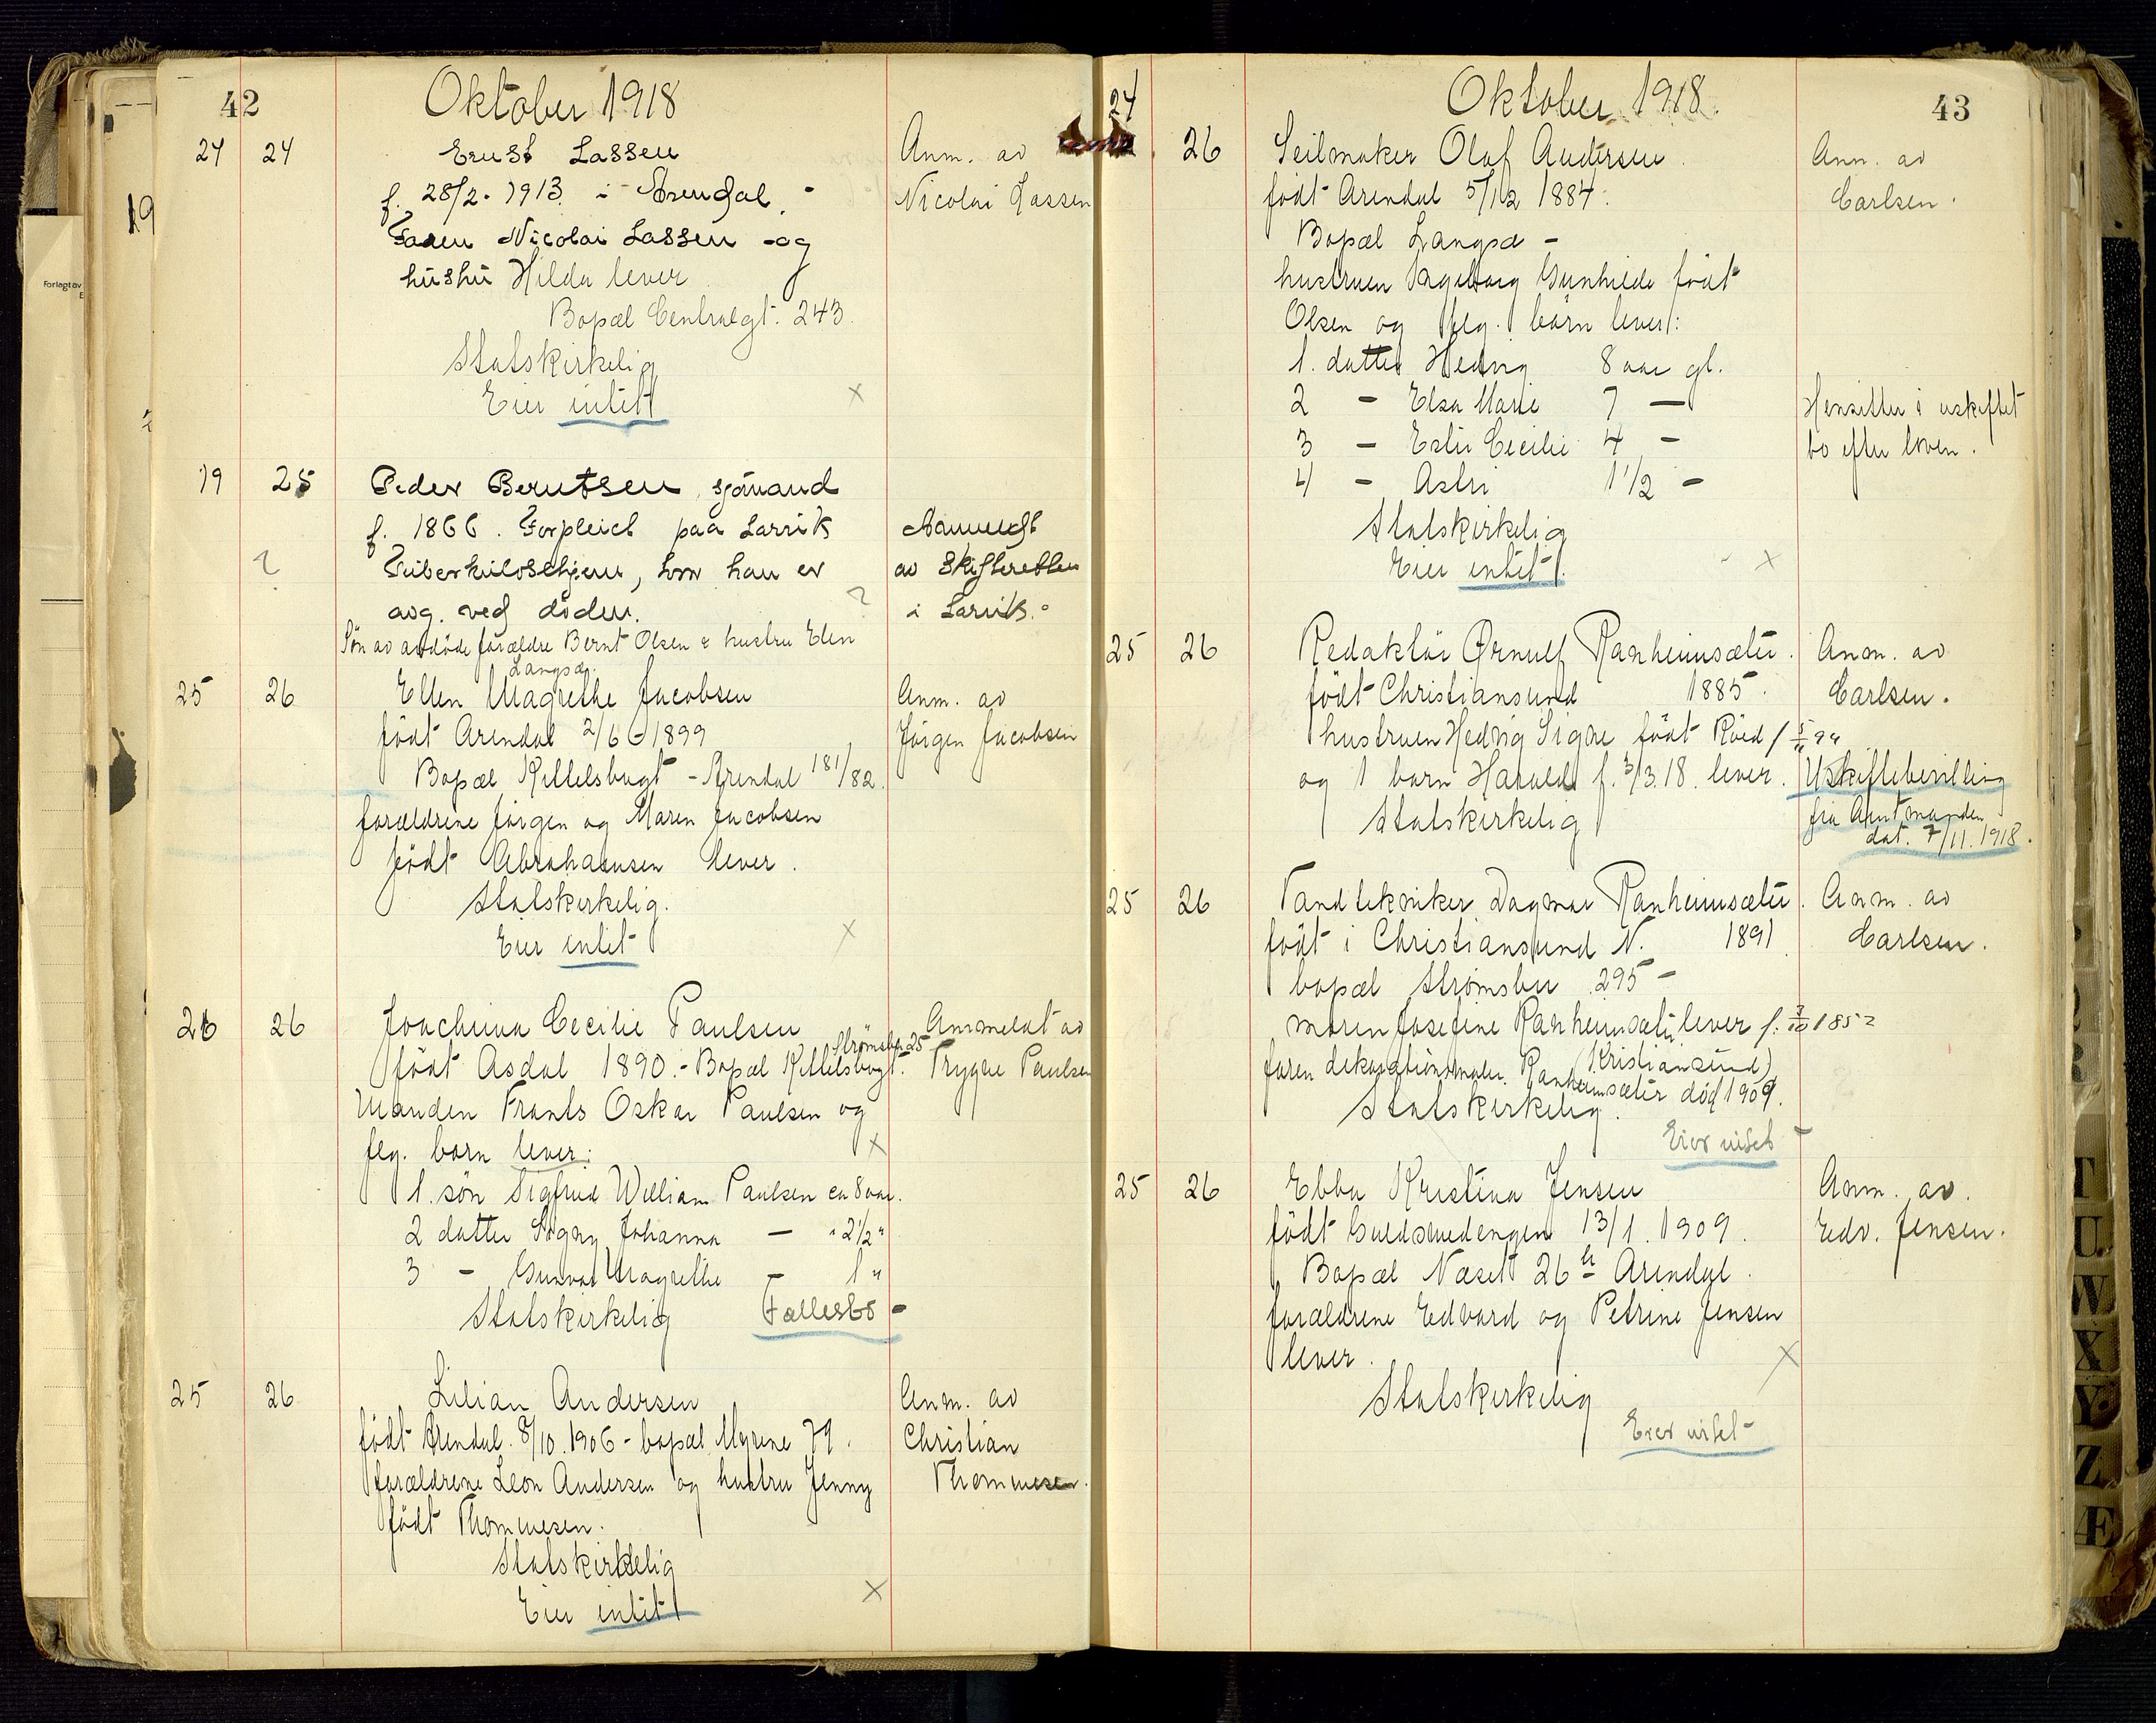 42
Oktober 1918
24 24 Ernst Lassen
f. 28/2. 1913 i Arendal.
Faren Nicolai Lassen og
hustru Hilda lever
Bopæl Centralgt. 243.
Statskirkelig
Eier intet
x
Anm. av
Nicolai Lassen
19 25 Peder Berntsen, sjømand
f. 1866. Forpleiet paa Larvik
Tuberkuloschjem, hvor han er
avg. ved döden.
Søn av avdöde forældre Bernt Olsen & hustru Elen
?
?
Anmeldt
av Skifteretten
i Larvik.
Langsæ.
25 26 Ellen Magrethe Jacobsen
født Arendal 2/6 1899
Bopæl Kittelsbugt - Arendal 181/82.
forældrene Jørgen og Maren Jacobsen
født Abrahamsen lever.
Statskirkelig.
Eier intet
x
Anm. av
Jørgen Jacobsen
26 26 Joachima Cecilie Paulsen
Strømsbu 25
født Asdal 1890. - Bopæl Kittelsbugt.
Manden Frants Oskar Paulsen og
flg. barn lever:
x
1. søn Sigfred William Paulsen ca 8 aar.
2 datter Signy Johanna — " 2 1/2 "
3 - Gunvor Magrethe — 1 "
Statskirkelig Fællesbo -
Anmeldt av
Trygve Paulsen
25 26 Lilian Andersen
født Arendal. 8/10. 1906 - bopæl Myrene 79.
forældrene Leon Andersen og hustru Jenny
født Thommesen.
Statskirkelig
Eier intet
x
Anm. av
Christian
Thommesen.
43
Oktober 1918.
24 26 Seilmaker Olaf Andersen.
født Arendal 5/12 1884.
Bopæl Langsæ -
hustruen Ingeborg Gunhilde født
Olsen og flg. børn lever:
1. datter Hedvig 8 aar gl.
2 - Elsa Marie 7 —
3 - Ester Cecilie 4 -
4 - Astri 1 1/2 -
Statskirkelig
Eier intet.
x
Anm. av
Carlsen.
Hensitter i uskiftet
bo efter loven.
25 26 Redaktør Ørnulf Ranheimsæter.
født Christiansund 1885.
hustruen Hedvig Signe født Röed
og 1 barn Harald f. 3/3.18. lever.
Statskirkelig
Anm. av
Carlsen.
Uskiftebevilling
fra Amtmanden
dat. 7/11. 1918.
25 26 Tandtekniker Dagmar Ranheimsæter.
født i Christiansund N. 1891
bopæl Strømsbu 295 -
moren Josefine Ranheimsæter lever f. 3/10 1852
(Kristiansund)
faren dekorationsmaler. Ranheimsæter död 1909.
Statskirkelig.
Eier intet -
Anm. av
Carlsen.
25 26 Ebba Kristina Jensen
født Guldsmedengen 13/1. 1909.
Bopæl Næset 26 b Arendal.
forældrene Edvard og Petrine Jensen
lever.
x
Statskirkelig
Eier intet -
Anm. av.
Edv. Jensen.
T
U
W
X
Y
Z
Æ